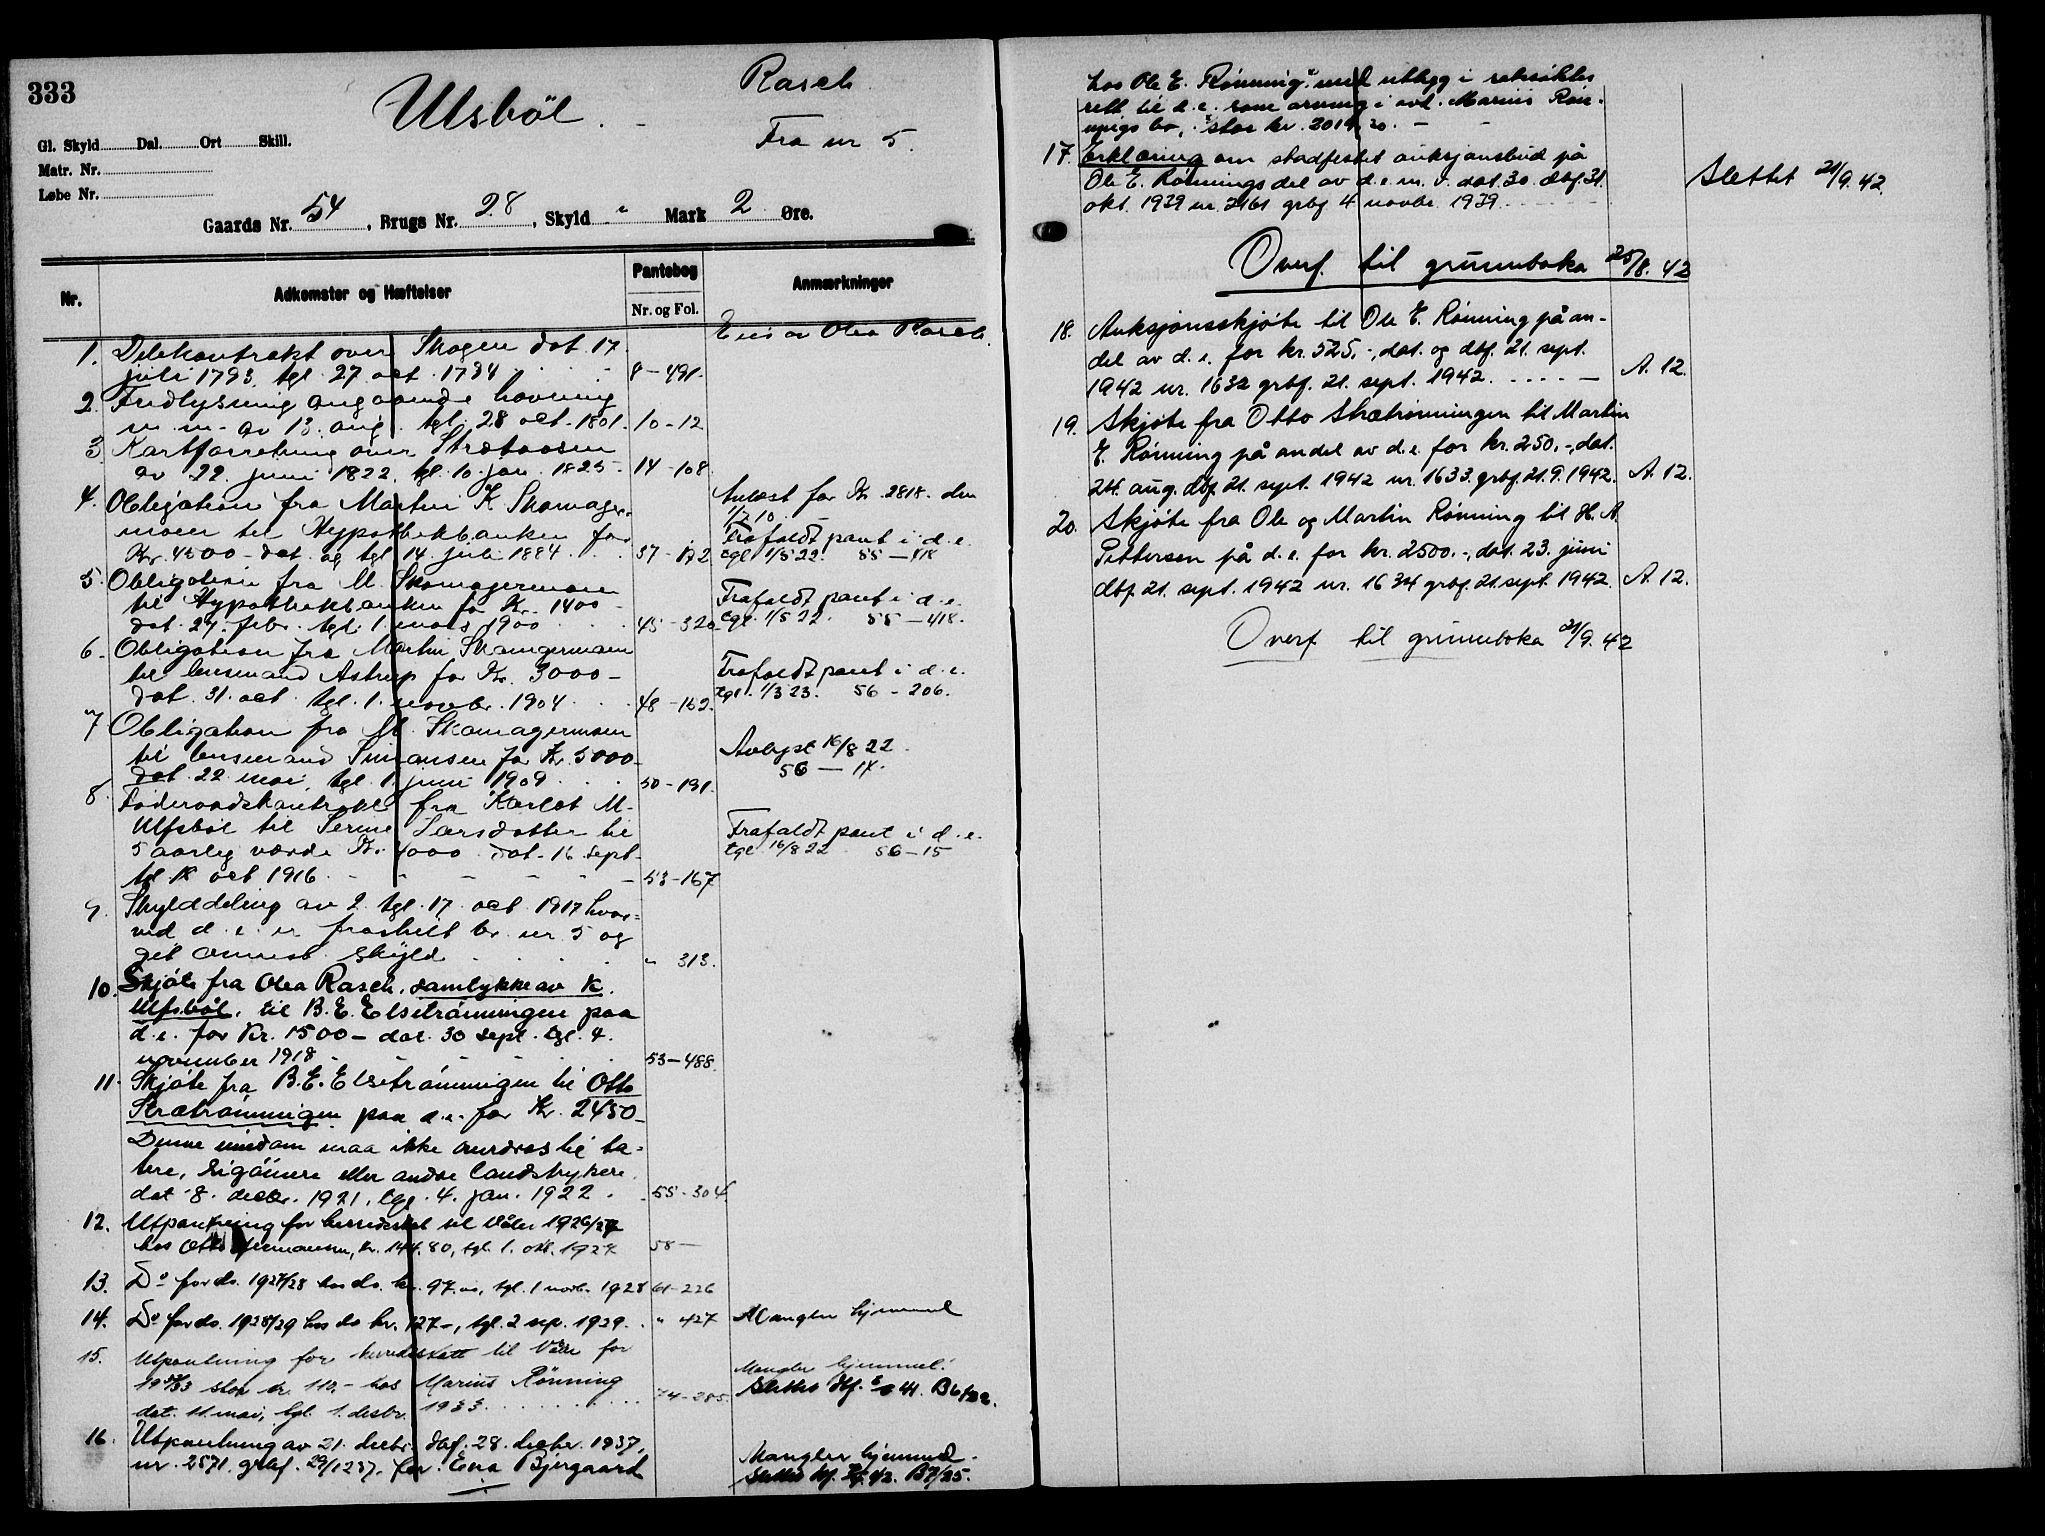 333
Ulsböl.
Rasch.
Fra nr 5.
Gl. Skyld Dal. Ort Skill.
Matr. Nr.
Løbe Nr.
Gaards Nr. 54, Brugs Nr. 28, Skyld " Mark 2 Øre.
Nr. Adkomster og Hæftelser Pantebog Nr. og Fol. Anmærkninger
Eies av Olea Rasch.
1. Delekontrakt over Skogen dat. 17
juli 1793. tgl. 27 oct. 1794 8-491.
2. Fredlysning angaaende havning
m m. av 13. aug. tgl. 28 oct. 1801. 10-12
3. Kartforretning over
av 22. juni 1822, tgl. 10. jan. 1825. 14-108.
4. Obligation fra Martin K. Skomager-
moen til Hypothekbanken for
Kr. 4500 - dat. og tgl. 14. juli 1884 37-172
Avløst for Kr. 2818. den
1/7 10.
Frafaldt pant i d.e.
tgl. 1/5 22. 55-418
5. Obligation fra M. Skomagermoen
til Hypothekbanken for Kr. 1400 -
dat. 27. febr. tgl. 1. mars 1900 45-320
Frafaldt pant i d.e.
tgl. 1/5 22. 55-418.
6. Obligation fra Martin Skomagermoen
til lensmand Astrup for Kr. 3000 -
dat. 31. oct. tgl. 1. novbr. 1904 48-152.
Frafaldt pant i d.e.
tgl. 1/3 23. 56-206.
7 Obligation fra M. Skomagermoen
til lensmand Simonsen for Kr. 5000 -
dat. 22 mai, tgl. 1. juni 1909 50-191.
Avlyst 16/8 22.
56-14.
8. Föderaadskontrakt fra Karlot M.
Ulfsböl til Serine Larsdatter til
5 aarlig værdi Kr. 4000 dat. 16 sept.
tgl. oct 1916. 53-167
Frafaldt pant i d.e.
tgl. 16/8 22 56-15
9. Skylddeling av 2. tgl. 17. oct. 1917 hvor-
ved d.e. er fraskilt br. nr 5 og
git anmest. skyld " 313.
10. Skjøte fra Olea Rasch, samtykke av K.
Ulfsböl, til B.E. Elsetrønningen paa
d.e. for Kr. 1500 - dat. 30 sept. tgl. 4.
november 1918 53-488.
11. Skjøte fra B.E. Elsetrønningen til Otto
Strætrønningen paa d.e. for Kr. 2450 -
Denne eiendom maa ikke overdras til ta-
tere, sigöinere eller andre landstrykere.
dat 8. decbr. 1921, tgl. 4. jan. 1922. 55-304
12. Utpantning for herredsskat til Våler 1926/27
hos Otto Hermansen, kr. 144.80, tgl. 1. okt. 1927 58-
13. Do for do. 1927/28 hos do. kr. 97.00, tgl. 1 novbr. 1928 61-226
14. Do for do. 1928/29 hos do kr. 127-, tgl. 2 sep. 1929. " 427 Mangler hjemmel
15. Utpantning for herredsskatt til Våler for
1932/33 stor kr. 110.- hos Marius Rønning
dat. 11 mai, tgl. 1. desbr. 1933 74-285.
Mangler hjemmel!
16. Utpantning av 21. decbr. dbf. 28. decbr. 1937,
nr. 2571. grbf. 29/12 37. for Ena Bjergaard
Mangler hjemmel.
hos Ole E. Rønning med utlegg i saksøktes
rett til d.e. som arving i avd. Marius Røn-
nings bo, stor kr. 2014.30.
17. Erklæring om stadfestet auksjonsbud på
Ole E. Rønnings del av d.e. m.v. dat. 30. dbf. 31.
okt. 1939 nr. 2161 grbf 4 novbr. 1939.
Slettet 21/9.42.
Overf. til grunnboka 25/8.42
18. Auksjonsskjøte til Ole E. Rønning på an-
del av d.e. for kr. 525,-, dat. og dbf. 21. sept.
1942 nr. 1632 grbf. 21. sept. 1942. A. 12.
19. Skjøte fra Otto Strætrønningen til Martin
E. Rønning på andel av d.e. for kr. 250.-, dat.
24. aug. dbf. 21. sept. 1942 nr. 1633. grbf. 21.9.1942. A. 12.
20. Skjøte fra Ole og Martin Rønning til H. A.
Pettersen på d.e. for kr. 2500.-, dat. 23. juni
dbf. 21. sept. 1942 nr. 1634 grbf. 21. sept. 1942. A. 12.
Overf. til grunnboka 21/9.42